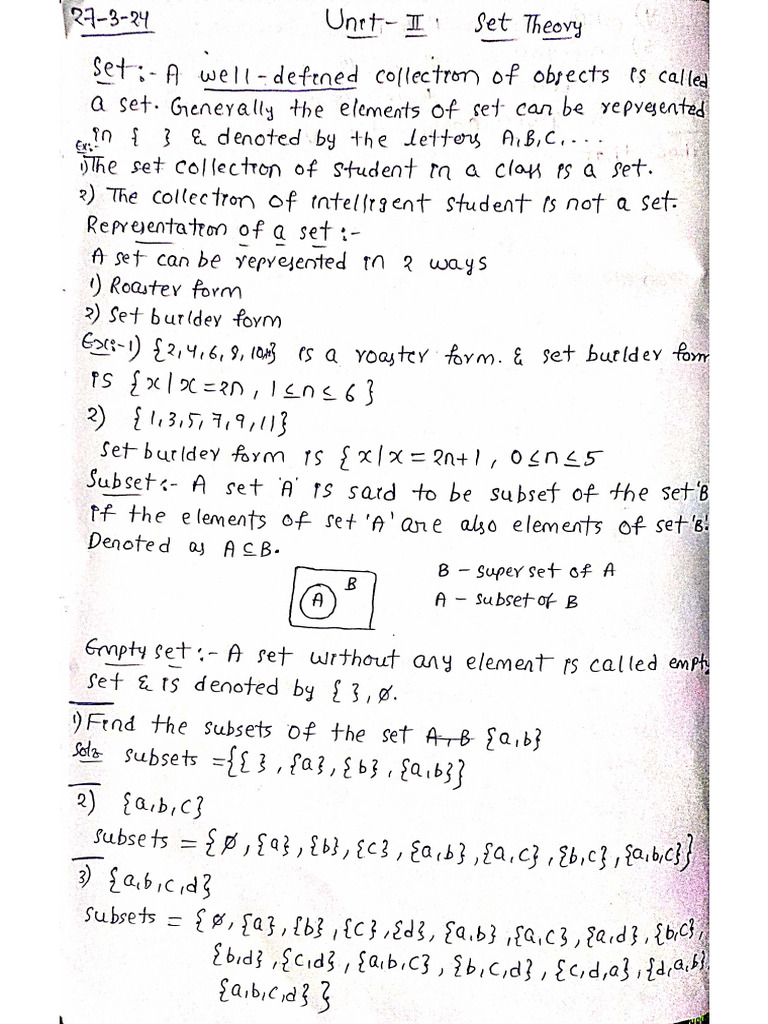 27-3-24 Unit-II : Set Theory
Set:- A well-defined collection of objects is called
a set. Generally the elements of set can be represented
in { } & denoted by the letters A,B,C,...
Ex:-
1) The set collection of student in a class is a set.
2) The collection of intelligent student is not a set.
Representation of a set :-
A set can be represented in 2 ways
1) Roaster form
2) Set builder form
Ex:-1) {2,4,6,8, } is a roaster form. & set builder form
is {x/x=2n, 1≤n≤6}
2) {1,3,5,7,9,11}
Set builder form is {x/x=2n+1, 0≤n≤5
Subset:- A set 'A' is said to be subset of the set 'B
if the elements of set 'A' are also elements of set 'B'.
Denoted as A⊆B.
A B
B - super set of A
A - subset of B
Empty set:- A set without any element is called empty
set & is denoted by { }, ø.
1) Find the subsets of the set A,B {a,b}
Soln subsets ={{ }, {a}, {b}, {a,b}}
2) {a,b,c}
subsets = {ø, {a}, {b}, {c}, {a,b}, {a,c}, {b,c}, {a,b,c}}
3) {a,b,c,d}
subsets = {ø, {a}, {b}, {c}, {d}, {a,b}, {a,c}, {a,d}, {b,c},
{b,d}, {c,d}, {a,b,c}, {b,c,d}, {c,d,a}, {d,a,b}
{a,b,c,d}}